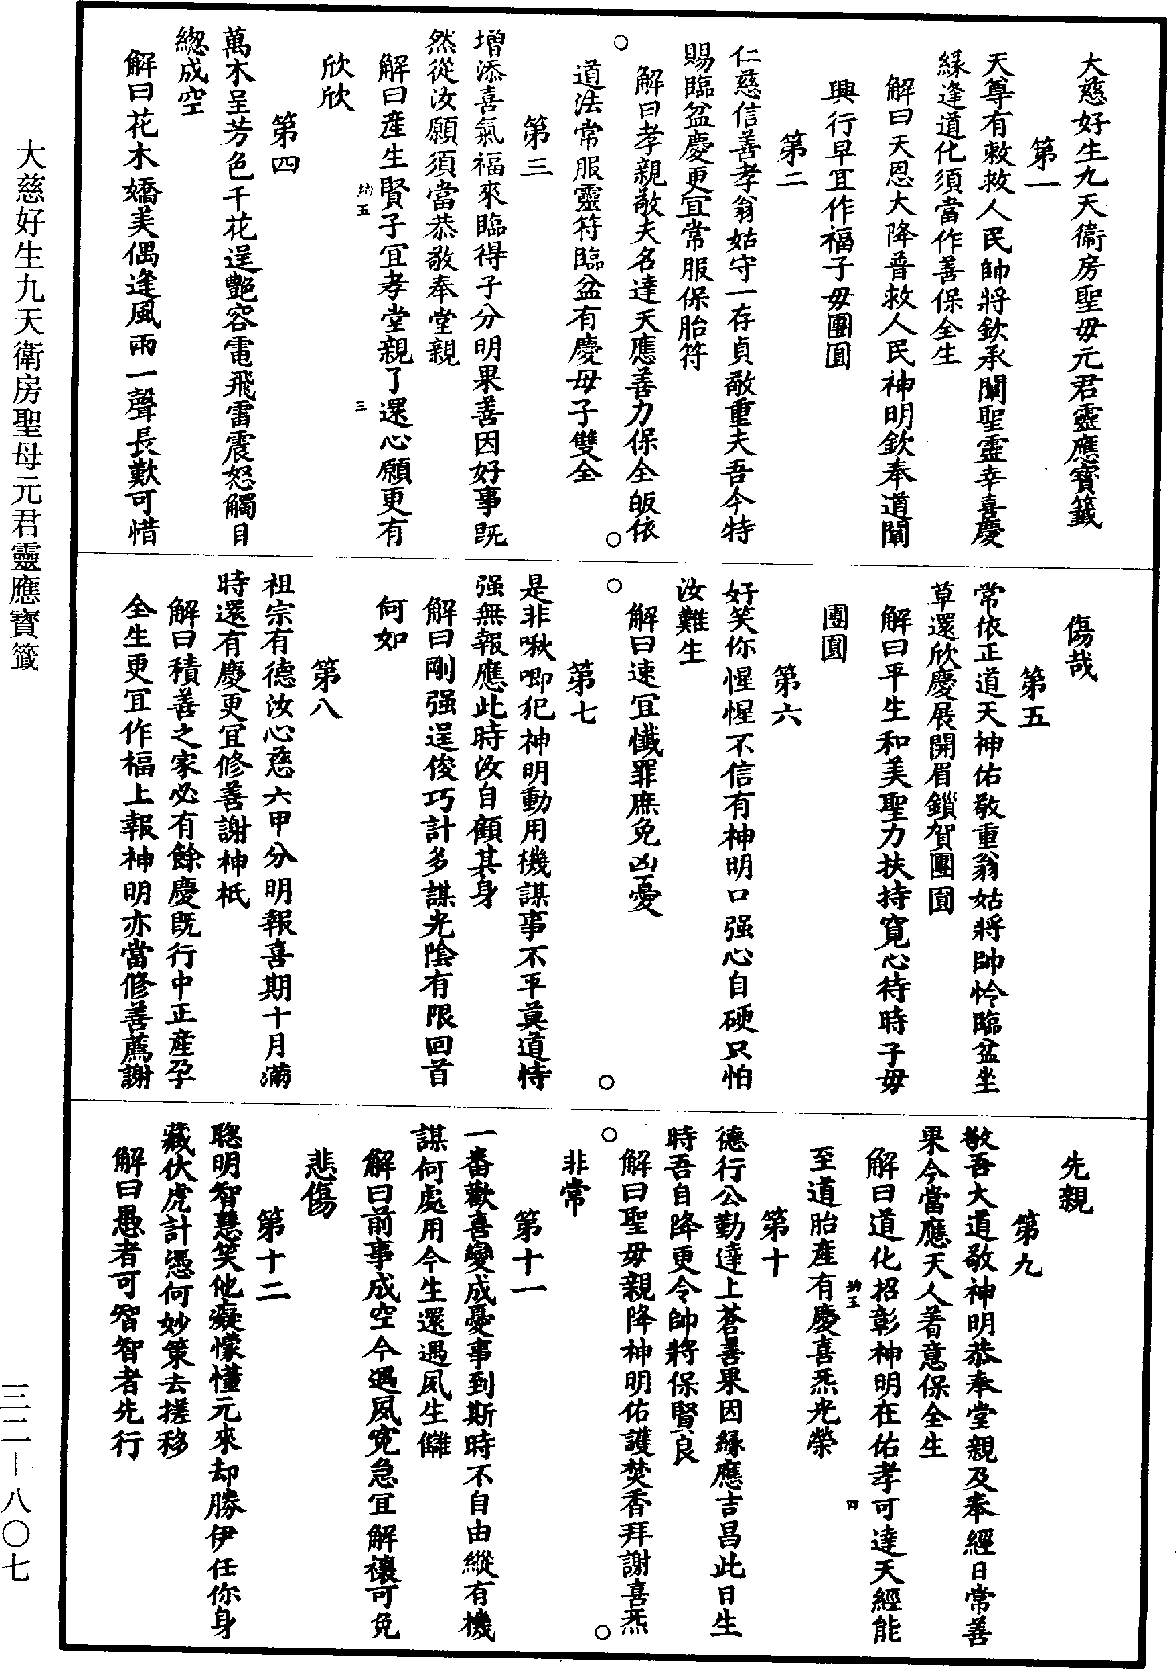 大慈好生九天衞房聖毋元君靈應寶籤
第一
天尊有敕救人民帥將欽承闡聖靈幸喜慶
緣逢道化須當作善保全生
解曰天恩大降普救人民神明欽奉道闡
興行早宜作福子毋團圓
第二
仁慈信善孝翁姑守一存貞敬重夫吾今特
賜臨盆慶更宜常服保胎符
解曰孝親敬夫名達天應善力保全皈依
道法常服靈符臨盆有慶毋子雙全
第三
增添喜氣福來臨得子分明果善因好事既
然從汝願須當恭敬奉堂親
解曰産生賢子宜孝堂親了還心願更有
欣欣
第四
萬木呈芳色千花逞艷容電飛雷震怒觸目
緫成空
解曰花木嬌美偶逢風雨一聲長歎可惜
傷哉
第五
常依正道天神佑敬重翁姑將帥怜臨盆坐
草還欣慶展開眉鎖賀團圓
解曰平生和美聖力扶持寬心待時子毋
團圓
第六
好笑你惺惺不信有神明口强心自硬只怕
汝難生
解曰速宜懺罪庶免凶憂
第七
是非啾唧犯神明動用機謀事不平莫道恃
强無報應此時汝自顧其身
解曰剛强逞俊巧計多謀光陰有限回首
何如
第八
祖宗有德汝心慈六甲分明報喜期十月滿
時還有慶更宜修善謝神祇
解曰積善之家必有餘慶既行中正産孕
全生更宜作福上報神明亦當修善薦謝
先親
第九
敬吾大道敬神明恭奉堂親及奉經日常善
果今當應天人著意保全生
解曰道化招彰神明在佑孝可達天經能
至道胎産有慶喜炁光榮
第十
德行公勤達上蒼善果因緣應吉昌此日生
時吾自降更令帥將保賢良
解曰聖毋親降神明佑護焚香拜謝喜炁
非常
第十一
一番歡喜變成憂事到斯時不自由縱有機
謀何處用今生還遇夙生讎
解曰前事成空今遇夙寃急宜解禳可免
悲傷
第十二
聰明智慧笑他癡懞懂元來却勝伊任你身
藏伏虎計憑何妙策去搓移
解曰愚者可智智者先行
大慈好生九天衛房聖母元君靈應寶籤
三二—八〇七